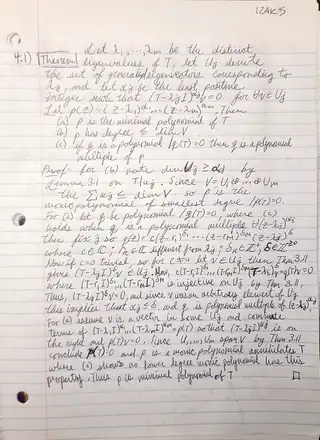 IZAK S
Let λ1,...,λm be the distinct
4.1) Theorem eigenvalues of T, let Uj denote
the set of generalized eigenvectors corresponding to
λj, and let αj be the least positive
integer such that (T-λjI)^αj v=0 for ∀v∈Uj
Let p(z)=(z-λ1)^α1...(z-λm)^αm. Then
(a) p is the minimal polynomial of T
(b) p has degree ≤ dim V
(c) if q is a polynomial q(T)=0 then q is a polynomial
multiple of p
Proof- For (b) note dim Uj ≥ αj by
Lemma 3.1 on T|Uj. Since V=U1⊕...⊕Um
the Σαj ≤ dim V so p is the
monic polynomial of smallest degree p(T)=0.
For (c) let q be polynomial q(T)=0, where (c)
holds when q is a polynomial multiple of (z-λj)^αj
then fix j so q(z)=c(z-r1)^δ1...(z-rM)^δM(z-λj)^δ
where c∈ℂ, rk∈ℂ different from λj, δk∈ℤ+, δ∈ℤ≥0
Now if c=0 trivial so for c≠0 let v∈Uj then Thm 3.11
gives (T-λjI)^αj v
Thus, (T-λjI)^δ v=0, and since v was an arbitrary element of Uj
this implies that αj≤δ, and q is polynomial multiple of (z-λj)^αj
For (a) assume v is a vector in some Uj and commute
terms of (T-λ1I)^α1...(T-λmI)^αm=p(T) so that (T-λjI)^αj is on
the right and p(T)v=0. Since U1,...,Um span V by Thm 3.11
conclude p(T)=0 and p is a monic polynomial annihilates T
where (c) shows no lower degree monic poly has this
property. Thus p is minimal polynomial of T □